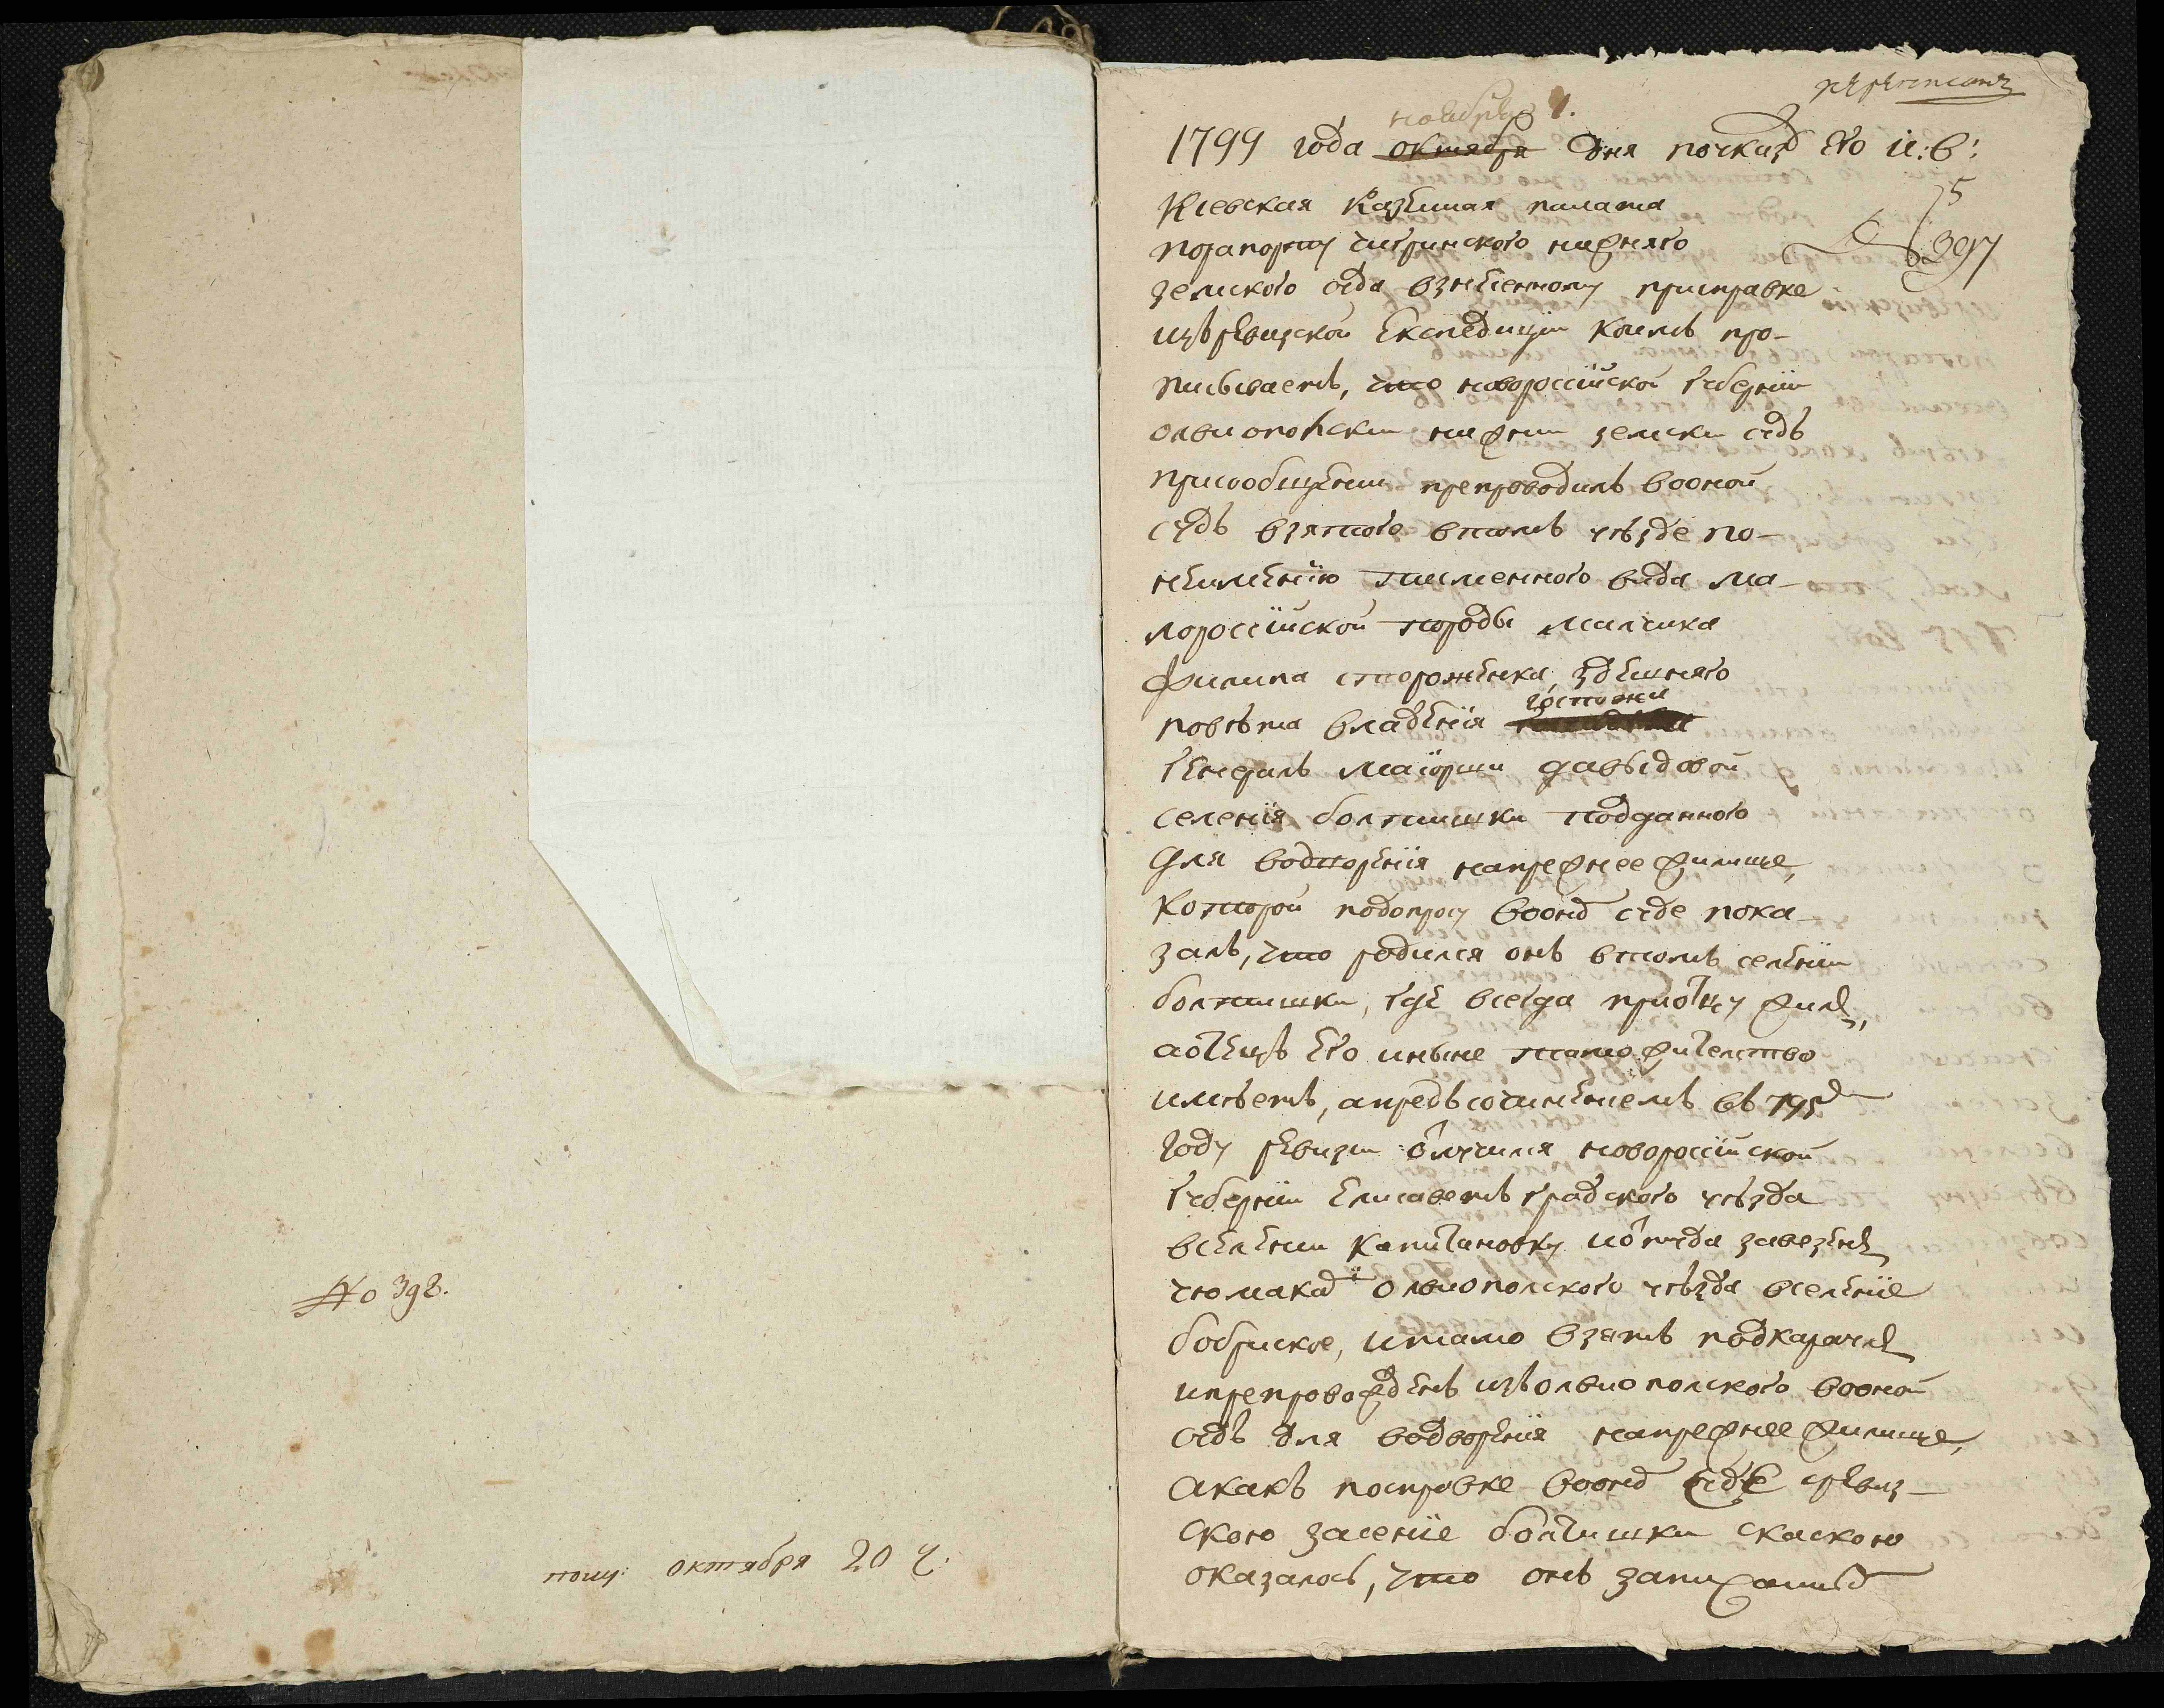 № 398.
полу: октября 20 ч.
ноября 4.
1799 года октября дня поуказу его и: в:
5
397
Киевская казенная палата
порапорту чигринского нижняго
земского суда взнесенному присправке
изъ ревизской експедиции коимъ про-
писываетъ, что новороссійской губерніи
олвиопольски нижнии земски судъ
присообщении препроводилъ воной
судъ взятого втомъ уѣзде по-
неимѣнію писменного вида ма-
лороссійской породы малчика
филипа стороженка, здешняго
повѣта владенія госпожи
генералъ маіорши давыдовой
селенія болтишки подданного
для водворенія напрежнее жилище,
которой подопросу воном суде пока-
залъ, что родился онъ втомъ селеніи
болтишки, где всегда приотцу жилъ,
аотецъ его иныне тамо жителство
имѣетъ, апредъ сочинениемъ въ 795м
году ревизии отлучился новороссійской
губерніи елисаветъ градского уѣзда
вселении капитановку иоттуда завезенъ
чюмакам олвиополского уѣзда вселеніе
бобриское, итамо взятъ подкараулъ
ипрепровожденъ изъ олвиополского воной
судъ для водворенія напрежнее жилище,
акакъ посправке воном суде сревиз-
скою заселеніе болтишки сказкою
оказалось, что онъ записанъ